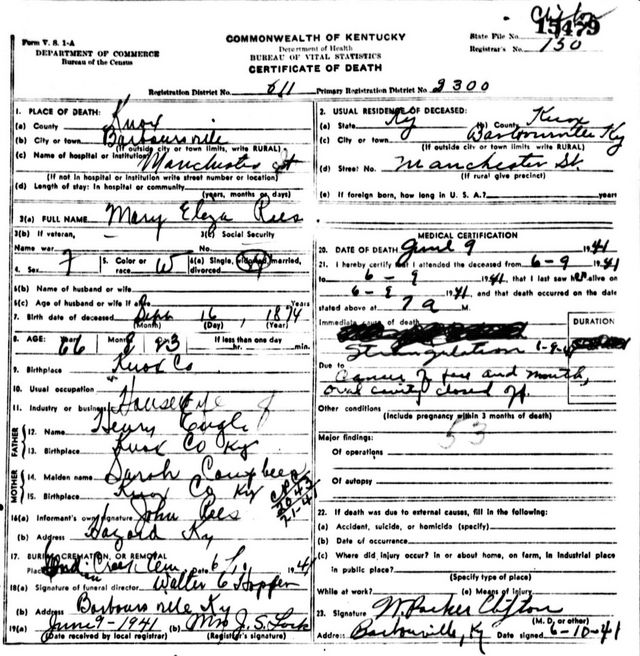 Form V. S. 1-A
DEPARTMENT OF COMMERCE
Bureau of the Census
COMMONWEALTH OF KENTUCKY
Department of Health
BUREAU OF VITAL STATISTICS
CERTIFICATE OF DEATH
State File No. 15479
Registrar's No. 150
Registration District No. 611 Primary Registration District No. 2300
1. PLACE OF DEATH:
(a) County Knox
(b) City or town Barbourville
(If outside city or town limits, write RURAL)
(c) Name of hospital or institution Manchester st
(If not in hospital or institution write street number or location)
(d) Length of stay: In hospital or community
(years, months or days)
2. USUAL RESIDENCE OF DECEASED:
(a) State Ky (b) County Knox
(c) City or town Barbourville Ky
(If outside city or town limits, write RURAL)
(d) Street No. Manchester St.
(If rural give precinct)
(e) If foreign born, how long in U. S. A.? years
3(a) FULL NAME Mary Eliza Rees
3(b) If veteran, Name war 3(c) Social Security No.
4. Sex F 5. Color or race W 6(a) Single, widowed, married, divorced
6(b) Name of husband or wife
6(c) Age of husband or wife if alive Years
7. Birth date of deceased Sept 16, 1874
(Month) (Day) (Year)
8. AGE: 66 8 23 If less than one day
hr. min.
9. Birthplace Knox Co
10. Usual occupation Housewife
11. Industry or business
FATHER
12. Name Henry Engle
13. Birthplace Knox Co Ky
MOTHER
14. Maiden name Sarah Campbell
15. Birthplace Knox Co Ky
16(a) Informant's own signature John Rees
(b) Address Hazard Ky
17. BURIAL, CREMATION, OR REMOVAL
Place Creek Cem, Date 1941
18(a) Signature of funeral director Walter C Hopper
(b) Address Barbourville Ky
19(a) June 9-1941 (b) Mrs J. S. Lock
(Date received by local registrar) (Registrar's signature)
MEDICAL CERTIFICATION
20. DATE OF DEATH June 9 1941
21. I hereby certify that I attended the deceased from 6-9 1941
to 6-9 1941, that I last saw her alive on
6-9 1941, and that death occurred on the date
stated above at 7 a M.
Immediate cause of death
DURATION
Strangulation
Due to Cancer of face and mouth,
oral cavity closed off.
Other conditions
(Include pregnancy within 3 months of death)
53
Major findings:
Of operations
Of autopsy
22. If death was due to external causes, fill in the following:
(a) Accident, suicide, or homicide (specify)
(b) Date of occurrence
(c) Where did injury occur? in or about home, on farm, in industrial place
in public place?
(Specify type of place)
While at work? (e) Means of Injury
23. Signature W. Parker Clifton
(M. D. or other)
Address Barbourville, Ky Date signed 6-10-41